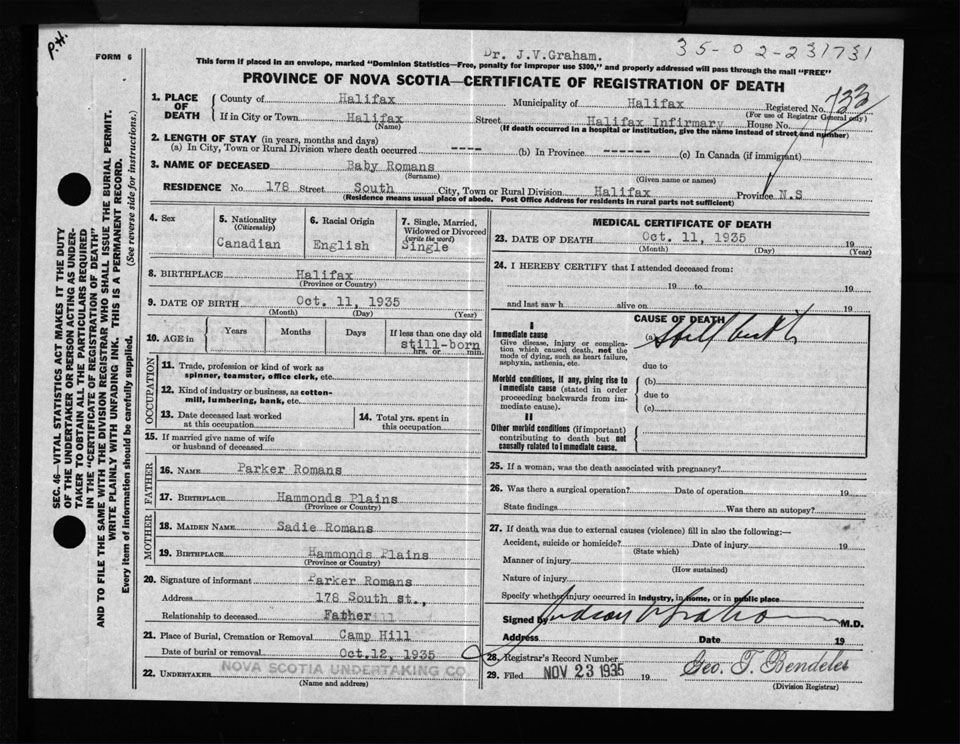 P.H.
FORM 6
Dr. J.V.Graham.
35-02-231731
This form if placed in an envelope, marked "Dominion Statistics—Free, penalty for improper use $300," and properly addressed will pass through the mail "FREE"
PROVINCE OF NOVA SCOTIA—CERTIFICATE OF REGISTRATION OF DEATH
SEC. 46—VITAL STATISTICS ACT MAKES IT THE DUTY
OF THE UNDERTAKER OR PERSON ACTING AS UNDER-
TAKER TO OBTAIN ALL THE PARTICULARS REQUIRED
IN THE "CERTIFICATE OF REGISTRATION OF DEATH"
AND TO FILE THE SAME WITH THE DIVISION REGISTRAR WHO SHALL ISSUE THE BURIAL PERMIT.
WRITE PLAINLY WITH UNFADING INK. THIS IS A PERMANENT RECORD.
Every item of information should be carefully supplied. (See reverse side for instructions.)
1. PLACE OF DEATH
County of Halifax Municipality of Halifax Registered No. 733
(For use of Registrar General only)
If in City or Town Halifax Street Halifax Infirmary House No.
(Name) (If death occurred in a hospital or institution, give the name instead of street and number)
2. LENGTH OF STAY (in years, months and days)
(a) In City, Town or Rural Division where death occurred ---- (b) In Province ------ (c) In Canada (if immigrant)
3. NAME OF DECEASED Baby Romans
(Surname) (Given name or names)
RESIDENCE No. 178 Street South City, Town or Rural Division Halifax Province N.S
(Residence means usual place of abode. Post Office Address for residents in rural parts not sufficient)
4. Sex
5. Nationality (Citizenship) Canadian
6. Racial Origin English
7. Single, Married, Widowed or Divorced (write the word) Single
8. BIRTHPLACE Halifax
(Province or Country)
9. DATE OF BIRTH Oct. 11, 1935
(Month) (Day) (Year)
10. AGE in Years Months Days If less than one day old
still-born
hrs. or min.
OCCUPATION
11. Trade, profession or kind of work as
spinner, teamster, office clerk, etc.
12. Kind of industry or business, as cotton-
mill, lumbering, bank, etc.
13. Date deceased last worked
at this occupation
14. Total yrs. spent in
this occupation
15. If married give name of wife
or husband of deceased
FATHER
16. NAME Parker Romans
17. BIRTHPLACE Hammonds Plains
(Province or Country)
MOTHER
18. MAIDEN NAME Sadie Romans
19. BIRTHPLACE Hammonds Plains
(Province or Country)
20. Signature of informant Parker Romans
Address 178 South st.,
Relationship to deceased Father
21. Place of Burial, Cremation or Removal Camp Hill
Date of burial or removal Oct.12, 1935
22. UNDERTAKER NOVA SCOTIA UNDERTAKING CO
(Name and address)
MEDICAL CERTIFICATE OF DEATH
23. DATE OF DEATH Oct. 11, 1935 19
(Month) (Day) (Year)
24. I HEREBY CERTIFY that I attended deceased from:
19 to 19
and last saw h alive on 19
CAUSE OF DEATH
I
Immediate cause
Give disease, injury or complica-
tion which caused death, not the
mode of dying, such as heart failure,
asphyxia, asthenia, etc.
(a) Still birth
due to
Morbid conditions, if any, giving rise to
immediate cause (stated in order
proceeding backwards from im-
mediate cause).
(b)
due to
(c)
II
Other morbid conditions (if important)
contributing to death but not
causally related to immediate cause.
25. If a woman, was the death associated with pregnancy?
26. Was there a surgical operation? Date of operation 19
State findings Was there an autopsy?
27. If death was due to external causes (violence) fill in also the following:—
Accident, suicide or homicide? Date of injury 19
(State which)
Manner of injury
(How sustained)
Nature of injury
Specify whether injury occurred in industry, in home, or in public place
Signed by M.D.
Address Date 19
28. Registrar's Record Number
29. Filed NOV 23 1935 19 Geo. T. Bendeler
(Division Registrar)